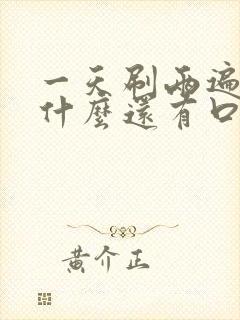 一天刷兩遍
什麼還有口
黃介正